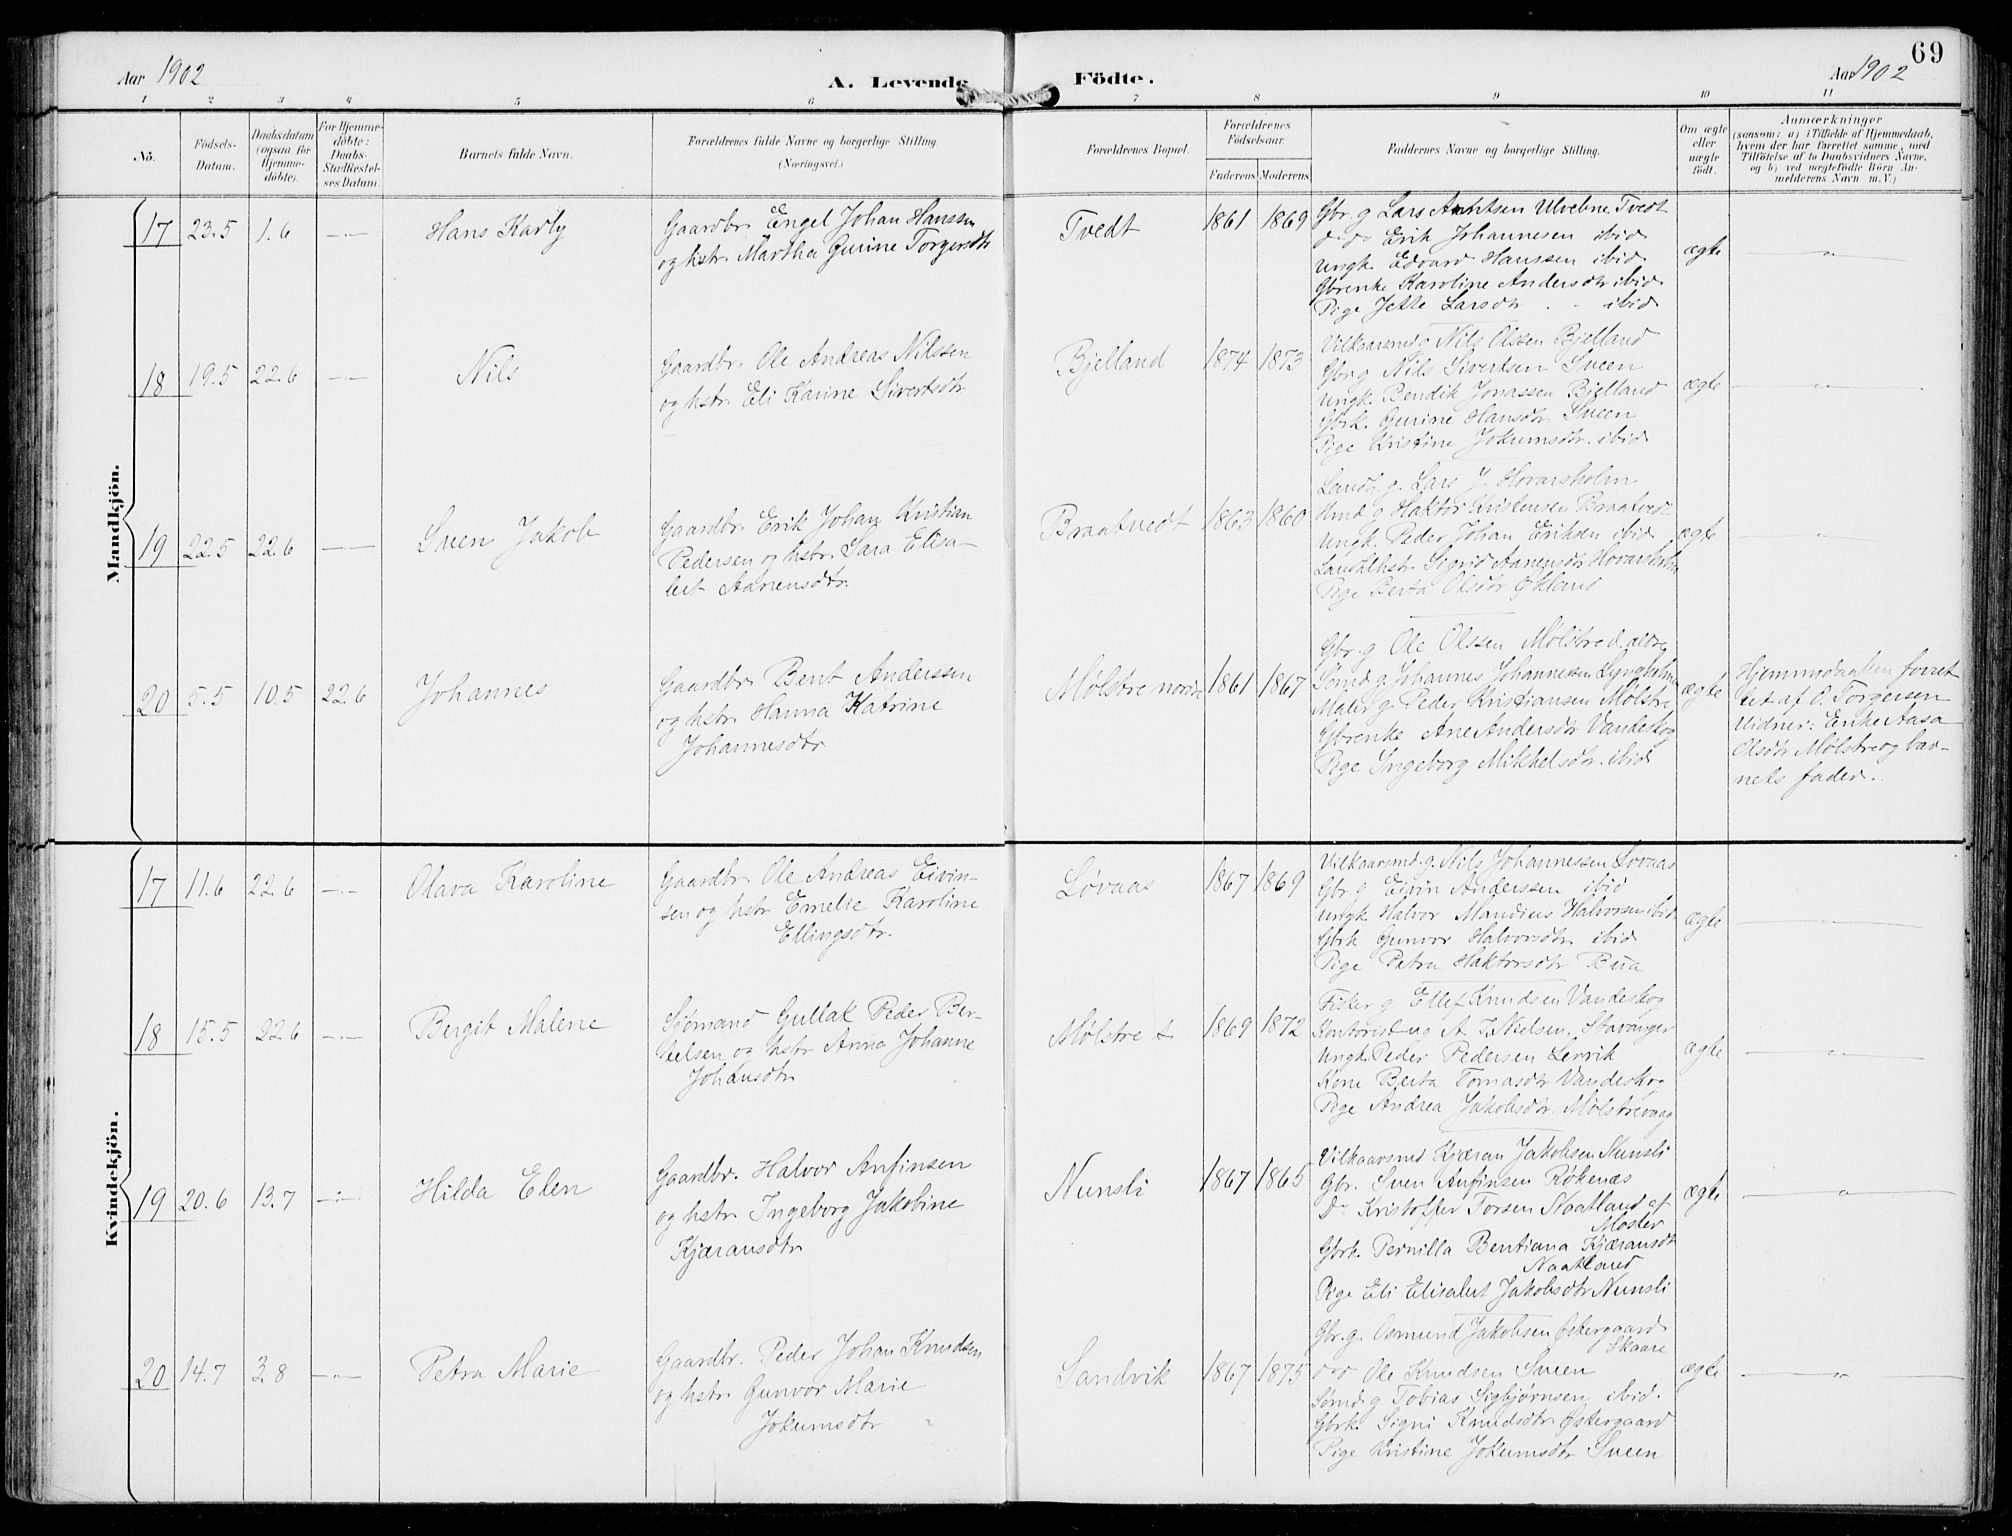 69
Aar 1902
A. Levende Födte.
Aar 1902
1 2 3 4 5 6 7 8 9 10 11
No.
Födsels-
Datum.
Daabsdatum
(ogsaa for
Hjemme-
döbte).
For Hjemme-
döbte:
Daabs-
Stadfæstel-
ses Datum.
Barnets fulde Navn.
Forældrenes fulde Navne og borgerlige Stilling.
(Næringsvei.)
Forældrenes Bopæl.
Forældrenes
Födselsaar.
Faderens Moderens
Faddernes Navne og borgerlige Stilling.
Om ægte
eller
uægte
födt.
Anmærkninger
(saasom: a) i Tilfælde af Hjemmedaab,
hvem der har forrettet samme, med
Tilföielse af to Daabsvidners Navne,
og b) ved uægtefödte Börn An-
melderens Navn m. V.)
Mandkjön.
17 23.5 1.6 Hans Karly
Gaardbr. Engel Johan Hanssen
og hstr. Martha Gurine Torgersdtr
Tvedt 1861 1869
Gbr. g Lars Arntsen Ulvebne Tvedt
do do Erik Johannesen ibid
Ungk. Edvard Hanssen ibid
Gbrenke Karoline Andersdtr ibid
Pige Jette Larsdtr ibid
ægte
18 19.5 22.6 Nils
Gaardbr. Ole Andreas Nilssen
og hstr. Eli Karine Sivertsdtr
Bjelland 1874 1873
Vilkaarsmd g Nils Olssen Bjelland
Gbr g Nils Sivertsen Sveen
Ungk. Bendik Jonassen Bjelland
Gbrk. Gurine Hansdtr Sveen
Pige Kristine Jokumsdtr. ibid
ægte
19 22.5 22.6 Sven Jakob
Gaardbr. Erik Johan Kristian
Pedersen og hstr. Sara Elisa-
bet Aanensdtr.
Braatvedt 1863 1860
Landh. g. Lars J. Hovarsholm
Smd g Haktor Kristensen Braatvedt
Ungk. Peder Johan Eriksen ibid
Landhhstr. Sigrid Aanensdtr Hovarsholm
Pige Berta Olsdtr Økland
ægte
20 5.5 10.5 22.6 Johannes
Gaardbr. Bent Anderssen
og hstr. Hanna Katrine
Johannesdtr
Mølstre nordr 1861 1867
Gbr. g Ole Olssen Mølstre d. ældre
Sømd g Johannes Johannessen Lyngholm
Maler g Peder Kristiansen Mølstre
Gbrenke Ane Andersdtr Vandeskog
Pige Ingeborg Mikkelsdtr. ibid
ægte
Hjemmedaaben forret
tet af O. Torgersen
Vidner: Enke Aasa
Olsdtr Mølstre og bar-
nets fader.
Kvindekjön.
17 11.6 22.6 Olava Karoline
Gaardbr. Ole Andreas Eivin-
sen og hstr Emelie Karoline
Ellingsdtr.
Løvaas 1867 1869
Vilkaarsmd. g. Nils Johannessen Løvaas
Gbr. g Eivin Anderssen ibid
Ungk Halvor Mandius Halvorsen ibid
Gbrk Gunvor Halvorsdtr ibid
Pige Petra Haktorsdtr Bua
ægte
18 15.5 22.6 Bergit Malene
Sømand Gullak Peder Ber-
telsen og hstr Anna Johanne
Johansdtr
Mølstre 1869 1872
Fisker g Ellef Knudsen Vandeskog
Kontorist ug A. T. Nielsen, Stavanger
Ungk. Peder Pedersen Lervik
Kone Berta Tomasdtr Vandeskog
Pige Andrea Jakobsdtr. Mølstrevaag
ægte
19 20.6 13.7 Hilda Elen
Gaardbr. Halvor Anfinsen
og hstr. Ingeborg Jakobine
Kjæransdtr
Nunsli 1867 1865
Vilkaarsmd Kjæran Jakobsen Nunsli
Gbr. Sven Anfinsen Røkenæs
Do Kristoffer Torsen Naatland af
Moster
Gbrk. Pernilla Bentiana Kjæransdtr
Naatland
Pige Eli Elisabet Jakobsdtr Nunsli
ægte
20 14.7 3.8 Petra Marie
Gaardbr. Peder Johan Knudsen
og hstr Gunvor Marie
Jokumsdtr
Sandvik 1867 1875
Gbr. g. Osmund Jakobsen Østergaard
Skaare
do do Ole Knudsen Sveen
Sømd. g Tobias Sigbjørnsen ibid.
Gbrk. Signi Knudsdtr Østergaard
Pige Kristine Jokumsdtr Sveen
ægte